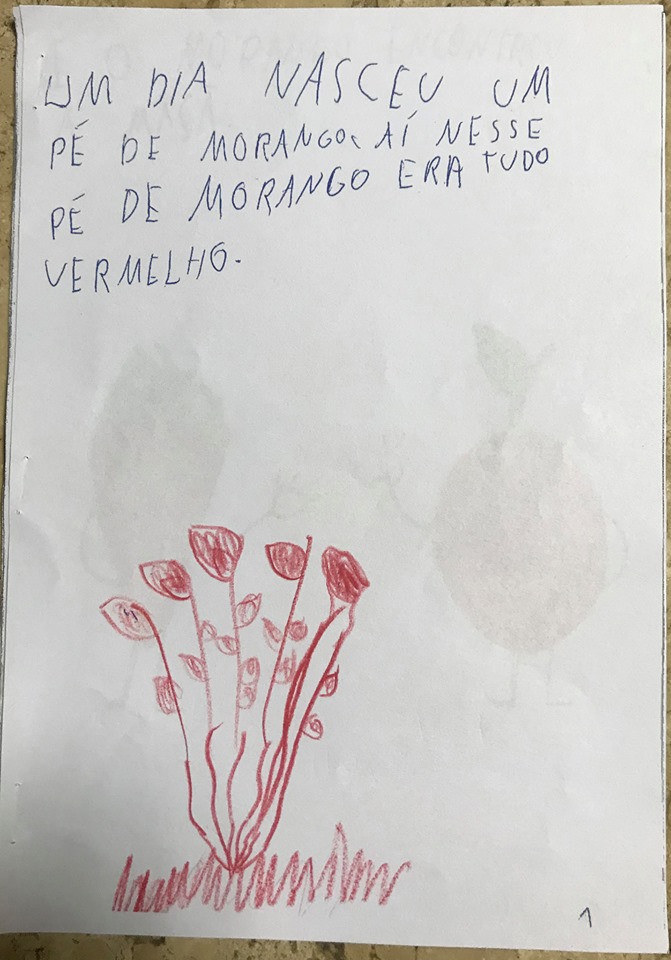 UM DIA NASCEU UM
PÉ DE MORANGO. AÍ NESSE
PÉ DE MORANGO ERA TUDO
VERMELHO.
1